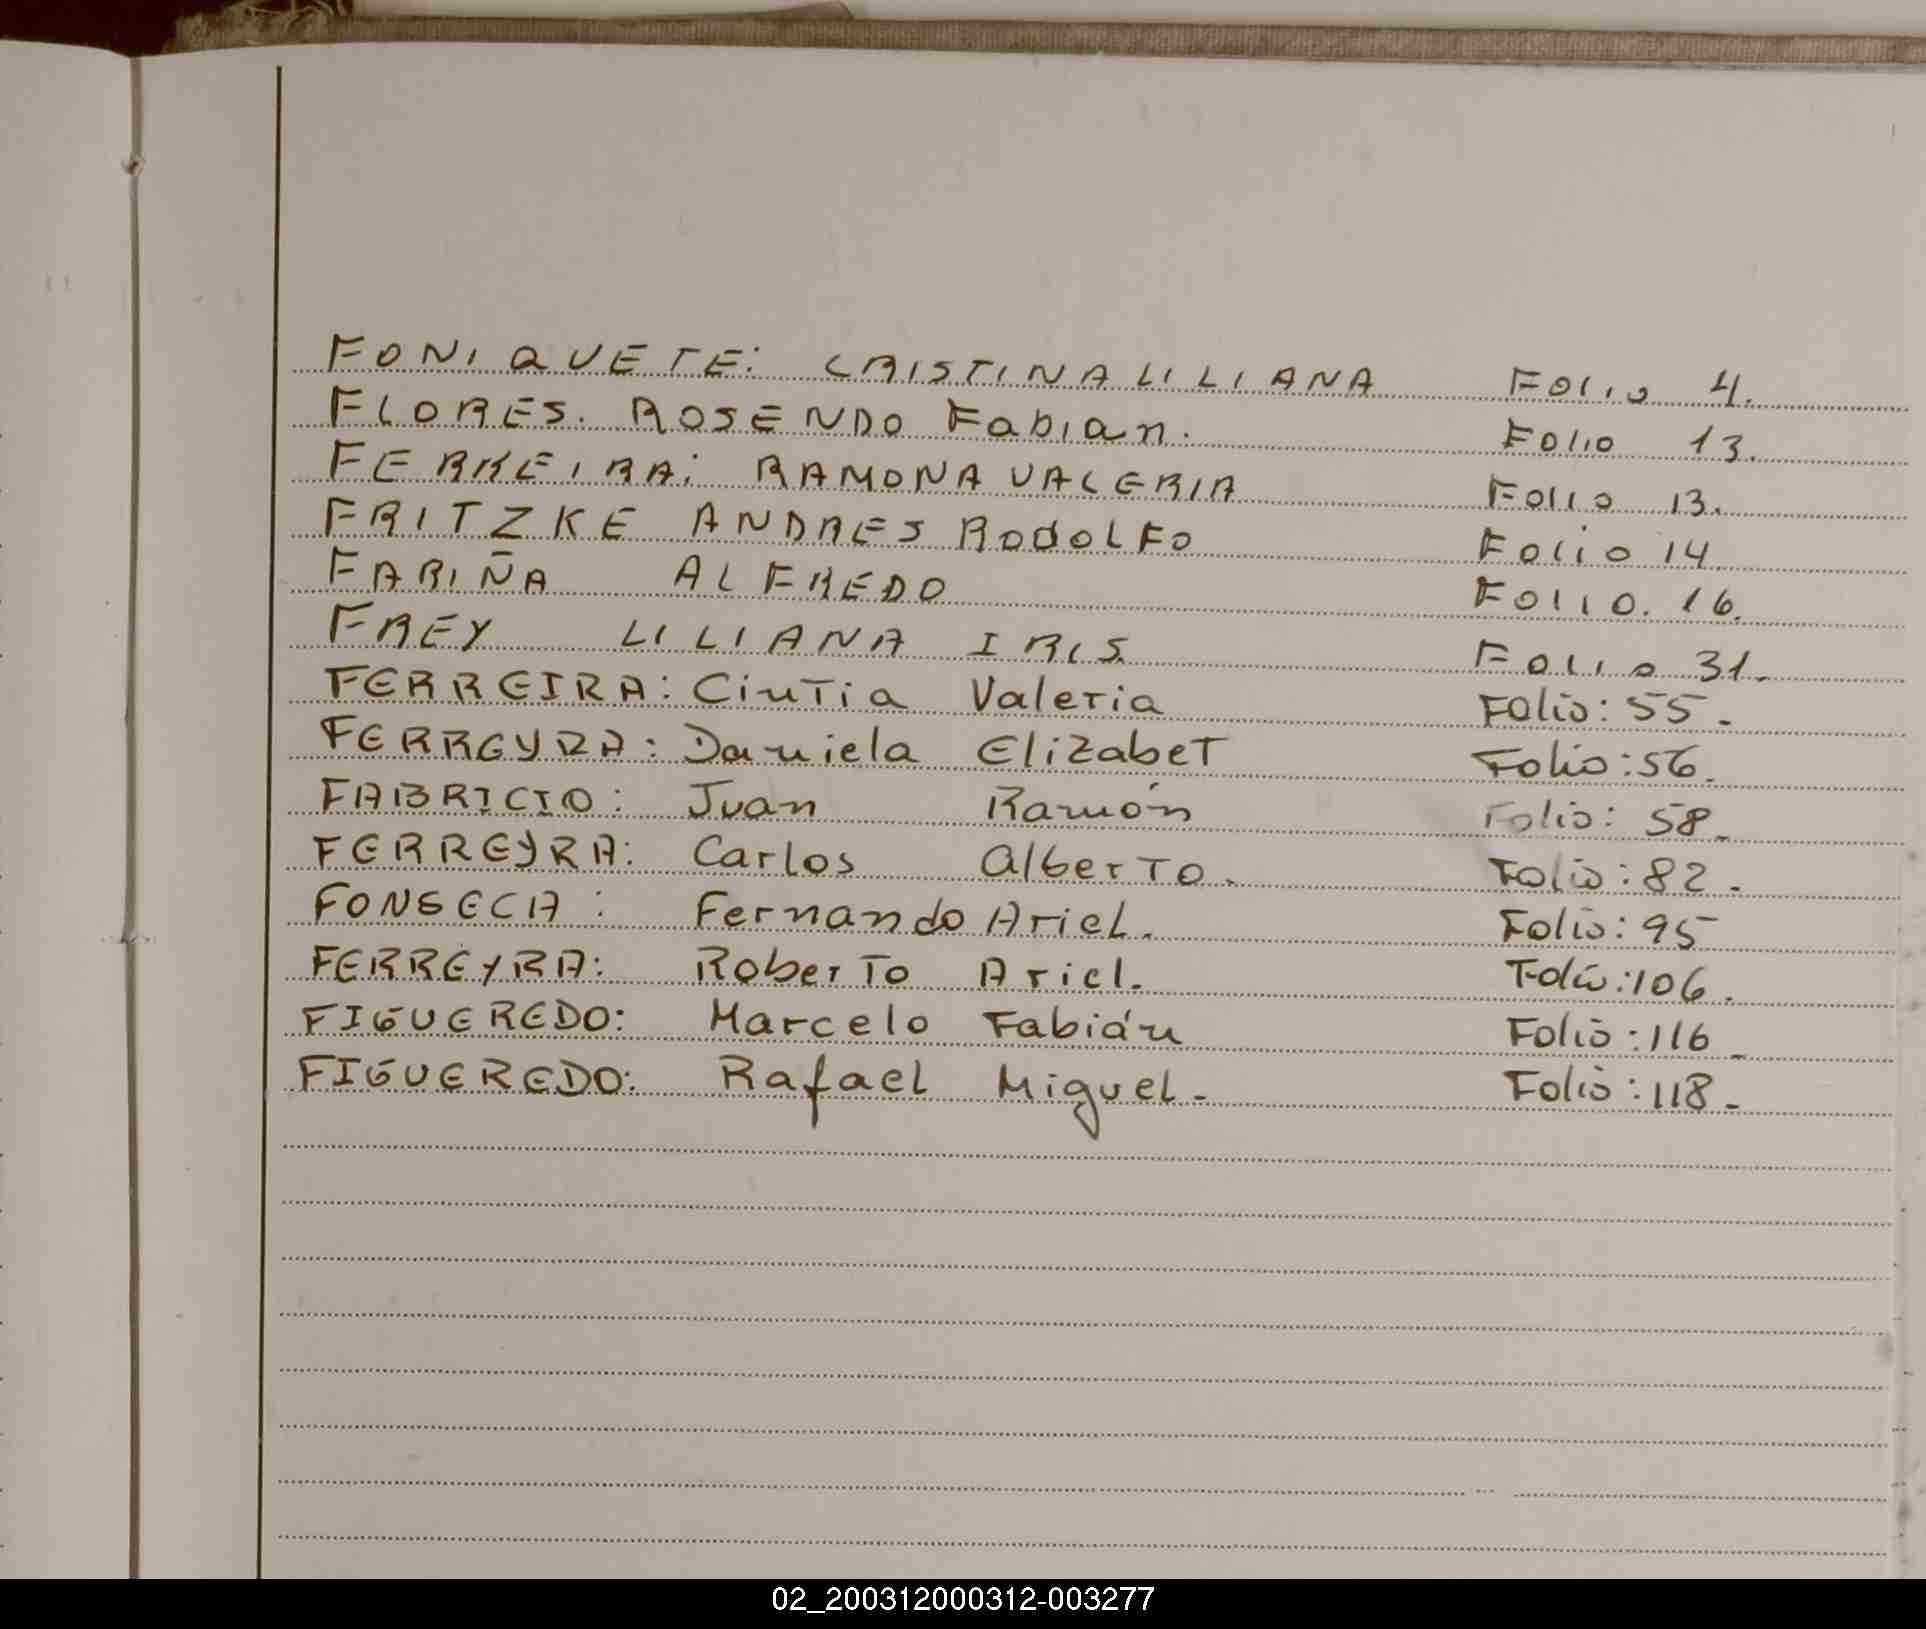 FONIQUETE: CRISTINA LILIANA Folio 4.
FLORES. ROSENDO Fabian. Folio 13.
FERREIRA: RAMONA VALERIA Folio 13.
FRITZKE ANDRES RodolFo Folio 14.
FARIÑA ALFREDO Folio. 16.
FREY LILIANA IRIS Folio 31.
FERREIRA: CinTia Valeria Folio: 55.-
FERREYRA: Daniela ElizabeT Folio: 56.
FABRICIO: Juan Ramón Folio: 58.-
FERREYRA: Carlos AlberTo. Folio: 82.-
FONSECA: Fernando Ariel. Folio: 95
FERREYRA: RoberTo Ariel. Folio: 106.
FIGUEREDO: Marcelo Fabián Folio: 116-
FIGUEREDO: Rafael Miguel.- Folio: 118.-
02_200312000312-003277